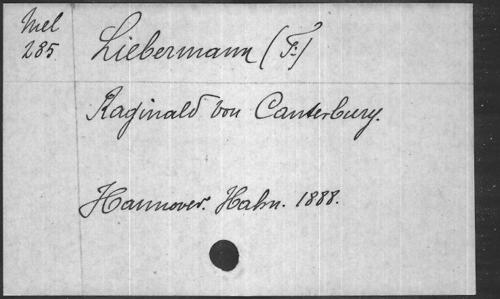 Mel
235
Liebermann (F.)
Raginald von Canterbury.
Hannover. Hahn. 1888.